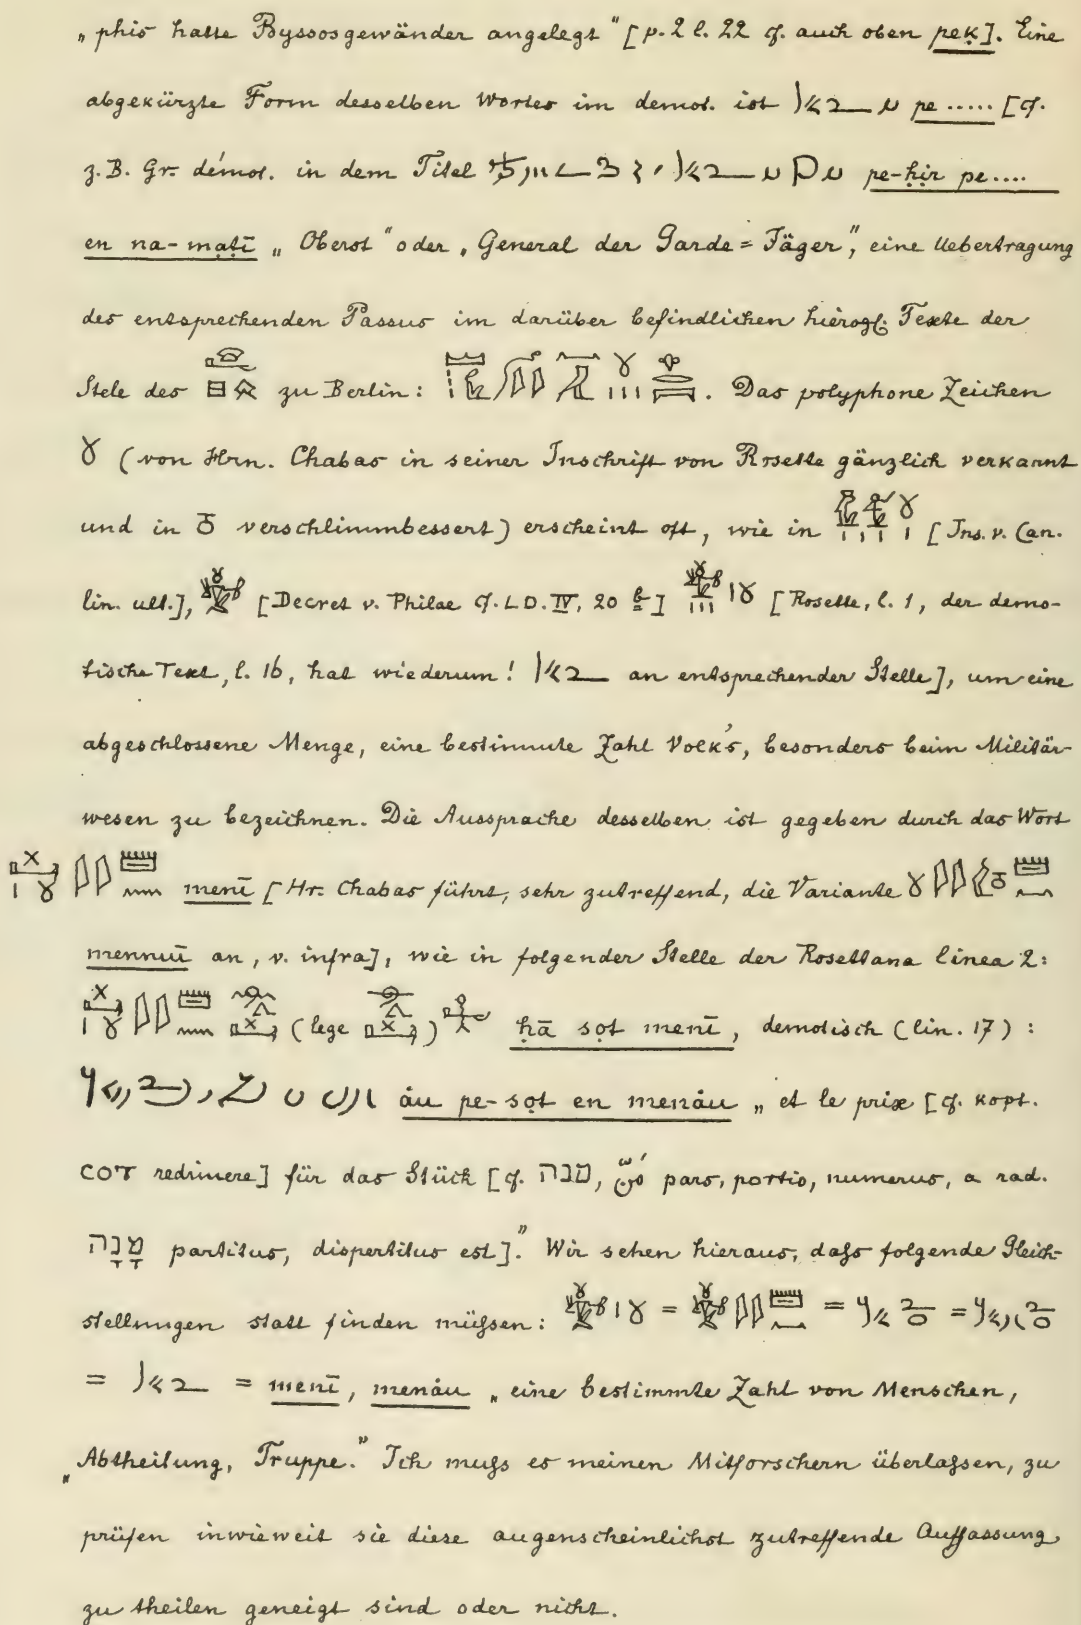 „phis hatte Byssosgewänder angelegt" [p. 2 l. 22 cf. auch oben peḳ]. Eine
abgekürzte Form desselben Wortes im demot. ist pe ..... [cf.
z. B. Gr. démot. in dem Titel pe-ḥir pe....
en na-matī „Oberst" oder „General der Garde=Jäger", eine Uebertragung
des entsprechenden Passus im darüber befindlichen hierogl. Texte der
Stele des zu Berlin: . Das polyphone Zeichen
(von Hrn. Chabas in seiner Inschrift von Rosette gänzlich verkannt
und in verschlimmbessert) erscheint oft, wie in [Ins. v. Can.
lin. ult.], [Decret v. Philae cf. LD. IV, 20 b] [Rosette, l. 1, der demo-
tische Text, l. 16, hat wiederum! an entsprechender Stelle], um eine
abgeschlossene Menge, eine bestimmte Zahl Volk's, besonders beim Militär-
wesen zu bezeichnen. Die Aussprache desselben ist gegeben durch das Wort
menī [Hr. Chabas führt, sehr zutreffend, die Variante
mennuī an, v. infra], wie in folgender Stelle der Rosettana linea 2:
(lege ) ḥā soṭ menī, demotisch (lin. 17) :
áu pe-soṭ en menáu „et le prix [cf. kopt.
ⲥⲟⲧ redimere] für das Stück [cf. מנה, pars, portio, numerus, a rad.
מָנָה partitus, dispertitus est]." Wir sehen hieraus, daſs folgende Gleich-
stellungen statt finden müſsen: = = =
= = menī, menáu „eine bestimmte Zahl von Menschen,
„Abtheilung, Truppe." Ich muſs es meinen Mitforschern überlaſsen, zu
prüfen inwieweit sie diese augenscheinlichst zutreffende Auffassung
zu theilen geneigt sind oder nicht.